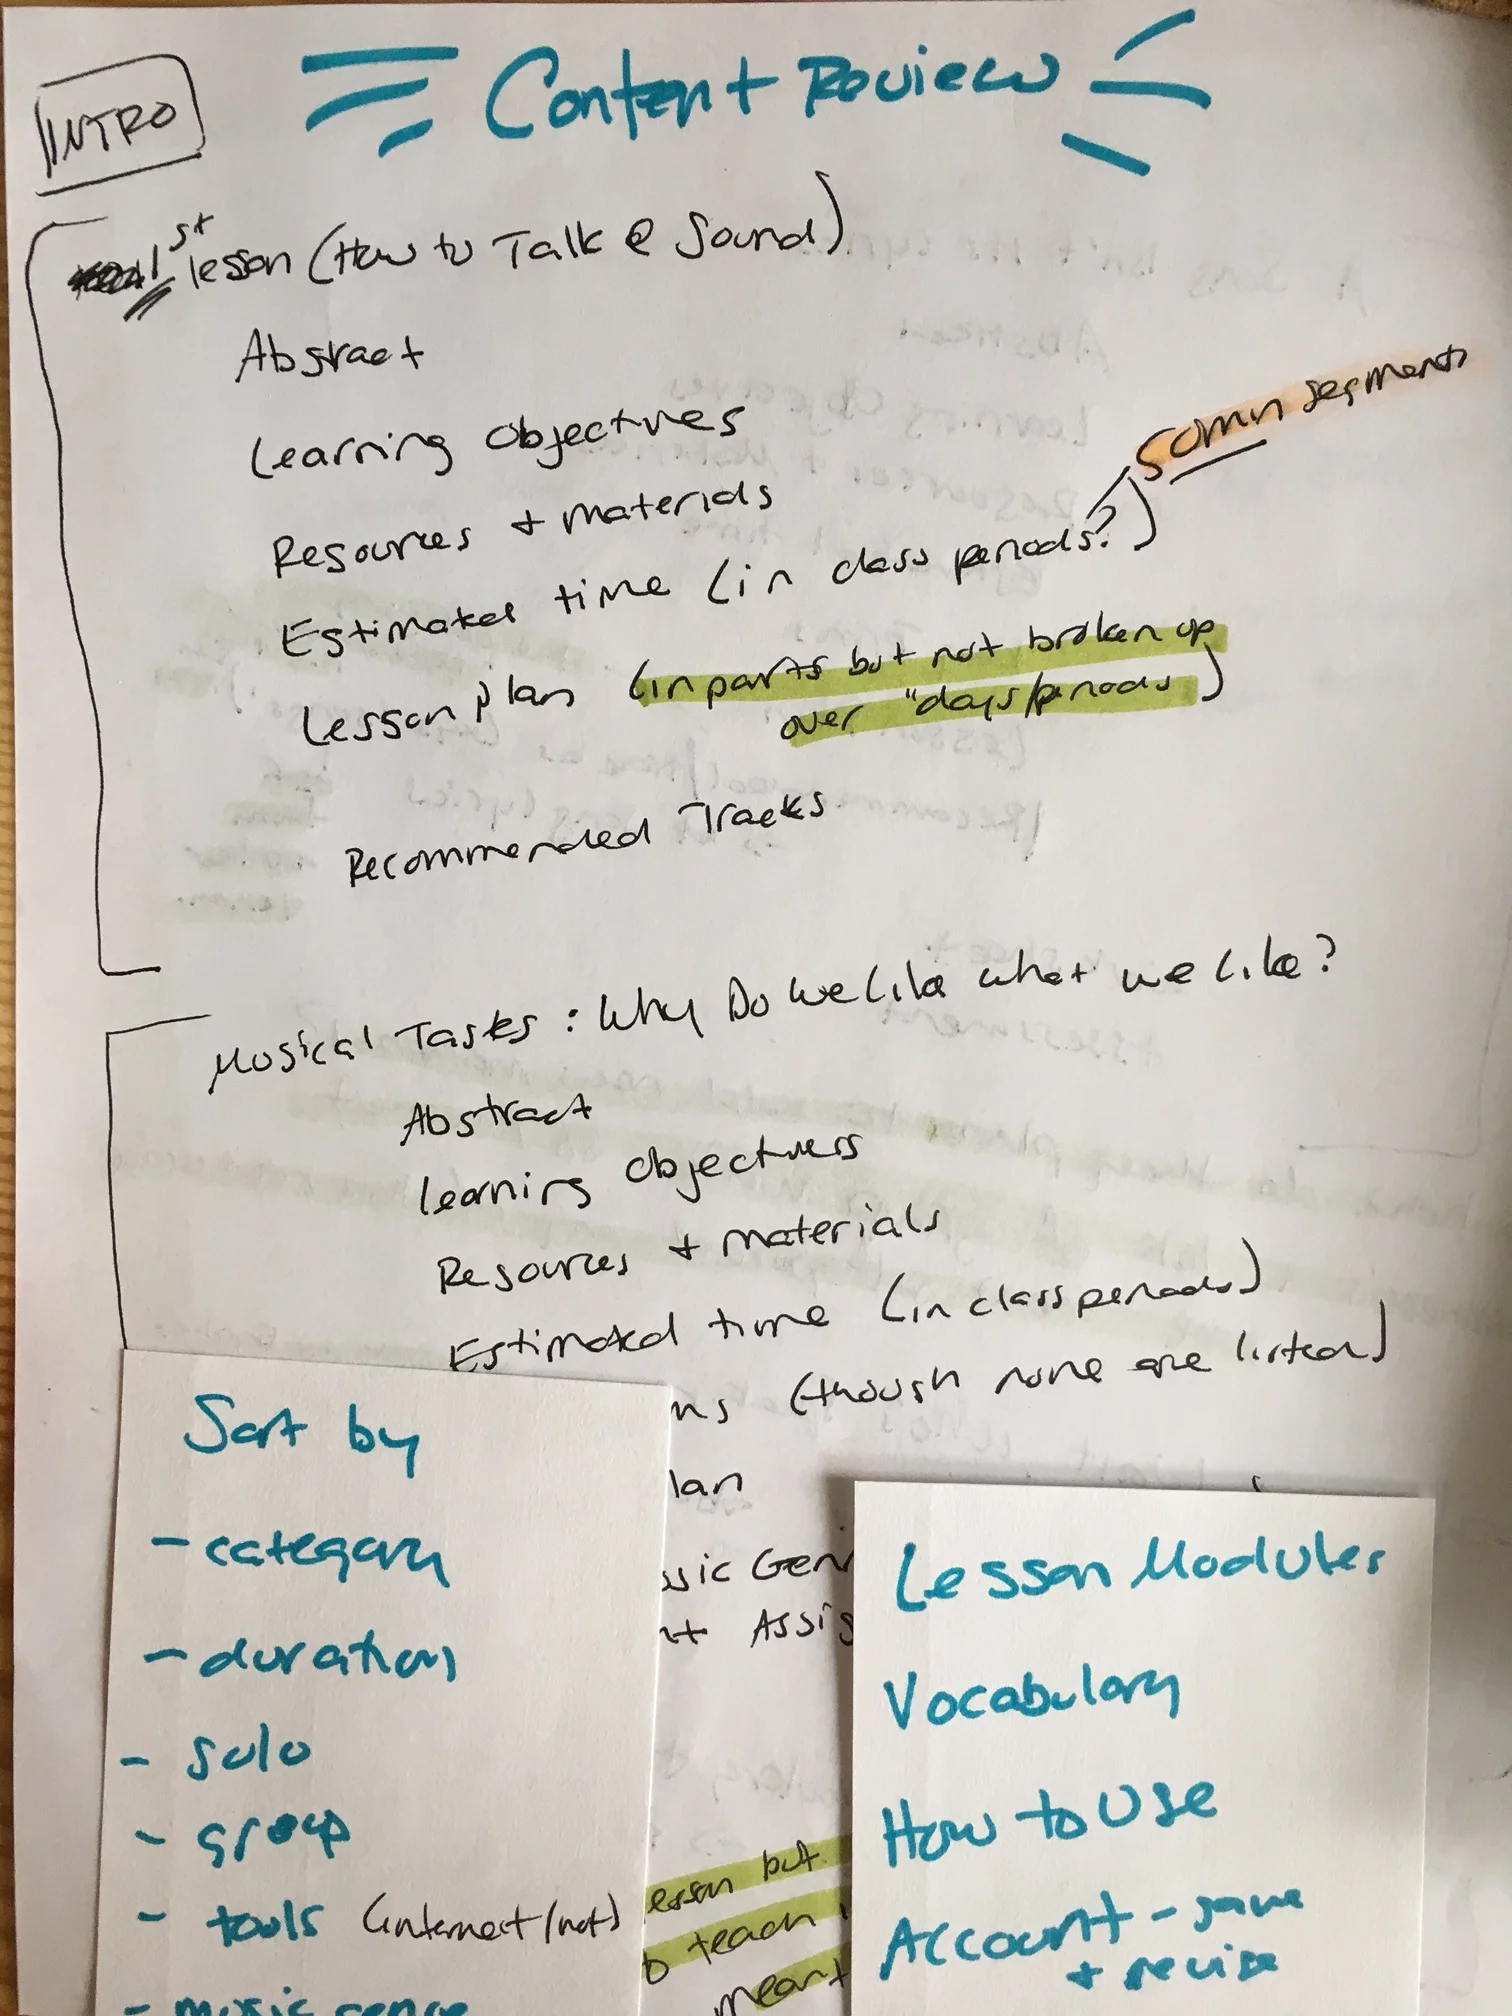 INTRO
Content Review
1st lesson (How to Talk @ Sound)
Abstract
Learning Objectives
Resources + materials
Estimated time (in class periods?)
50min segments
Lesson plan (in parts but not broken up
over "days/periods)
Recommended Tracks
Musical Tasks: Why Do We Like what we like?
Abstract
Learning objectives
Resources + materials
Estimated time (in class periods)
ns (though none are listed)
lan
sic Gen
nt Assig
esson but
o teach
meant
Sort by
- category
- duration
- solo
- group
- tools (internet/not)
- music genre
Lesson Modules
Vocabulary
How to Use
Account - save
+ revise